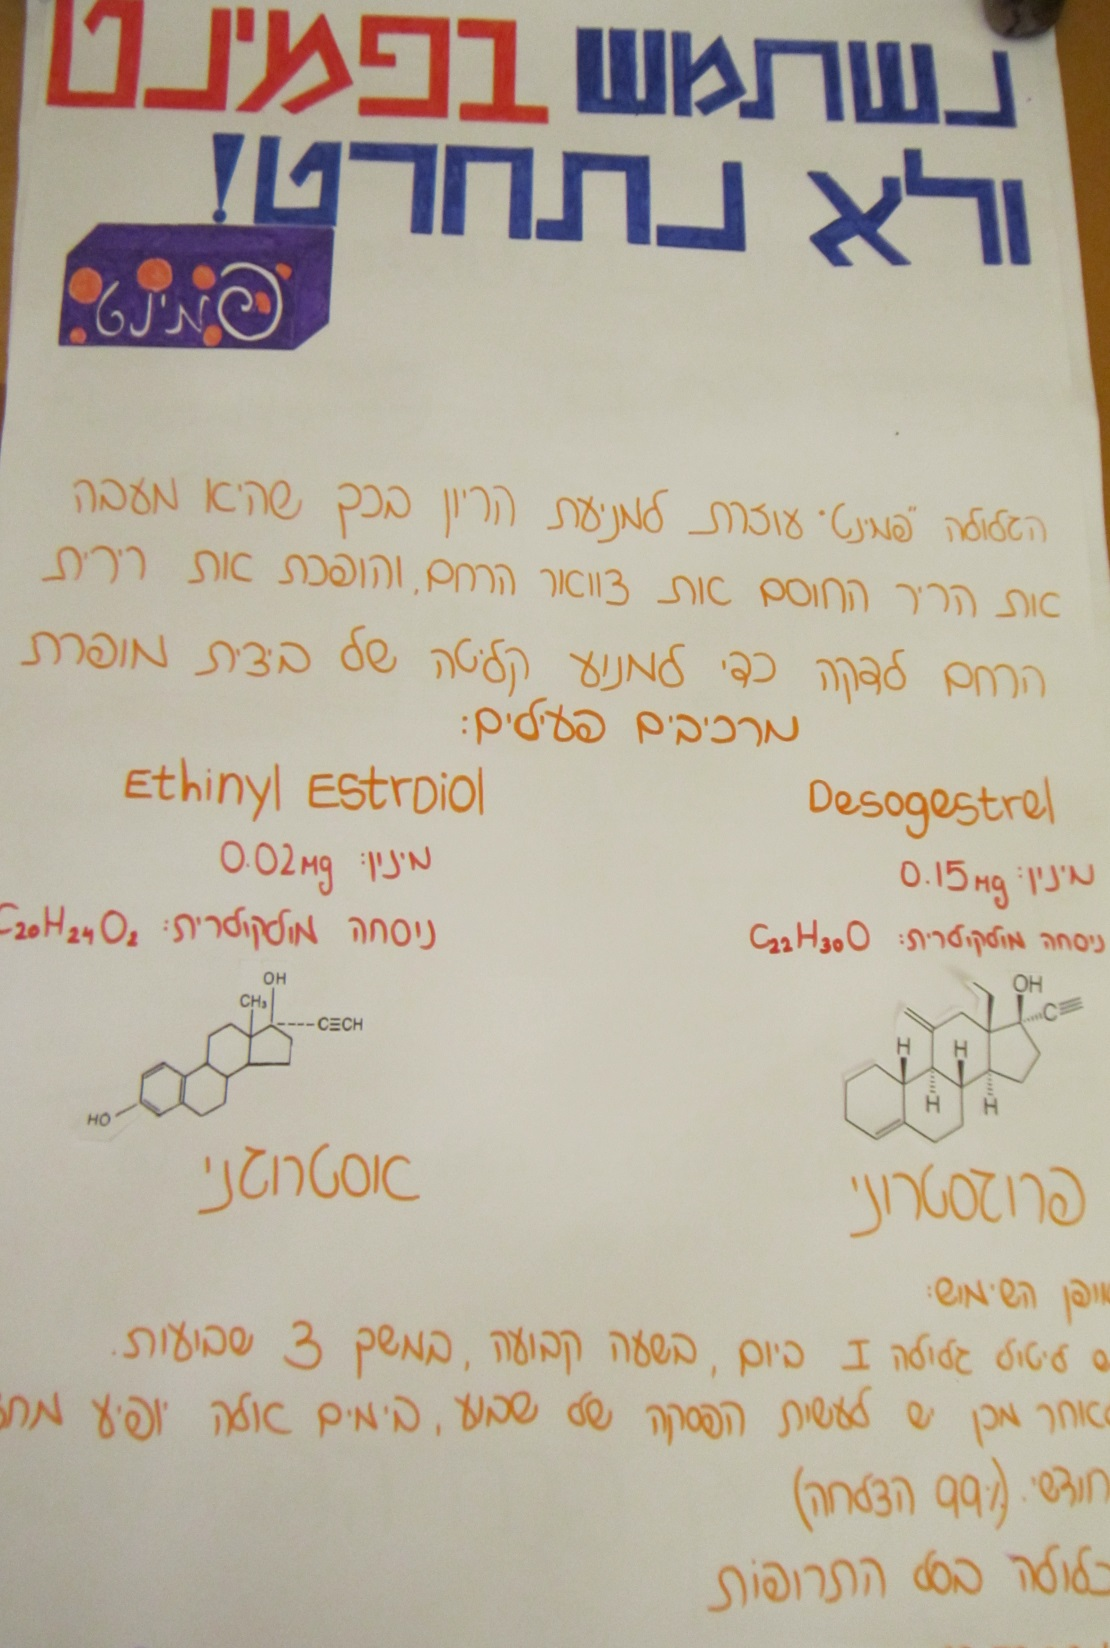 נשתמש בפמינט
ולא נתחרט!
פמינט
הגלולה "פמינט" עוזרת למניעת הריון בכך שהיא מעבה
את הריר החוסם את צוואר הרחם, והופכת את רירית
הרחם לדקה כדי למנוע קליטה של ביצית מופרת
מרכיבים פעילים:
Desogestrel
מינון: 0.15mg
ניסחה מולקולרית: C₂₂H₃₀O
OH
C≡
H
H
H
H
פרוגסטרוני
Ethinyl Estrdiol
מינון: 0.02mg
ניסחה מולקולרית: C₂₀H₂₄O₂
OH
CH₃
C≡CH
HO
אסטרוגני
אופן השימוש:
יש ליטול גלולה 1 ביום, בשעה קבועה, במשך 3 שבועות.
לאחר מכן יש לעשות הפסקה של שבוע, בימים אלה יופיע
חודשי. (99% הצלחה)
כלולה בסל התרופות